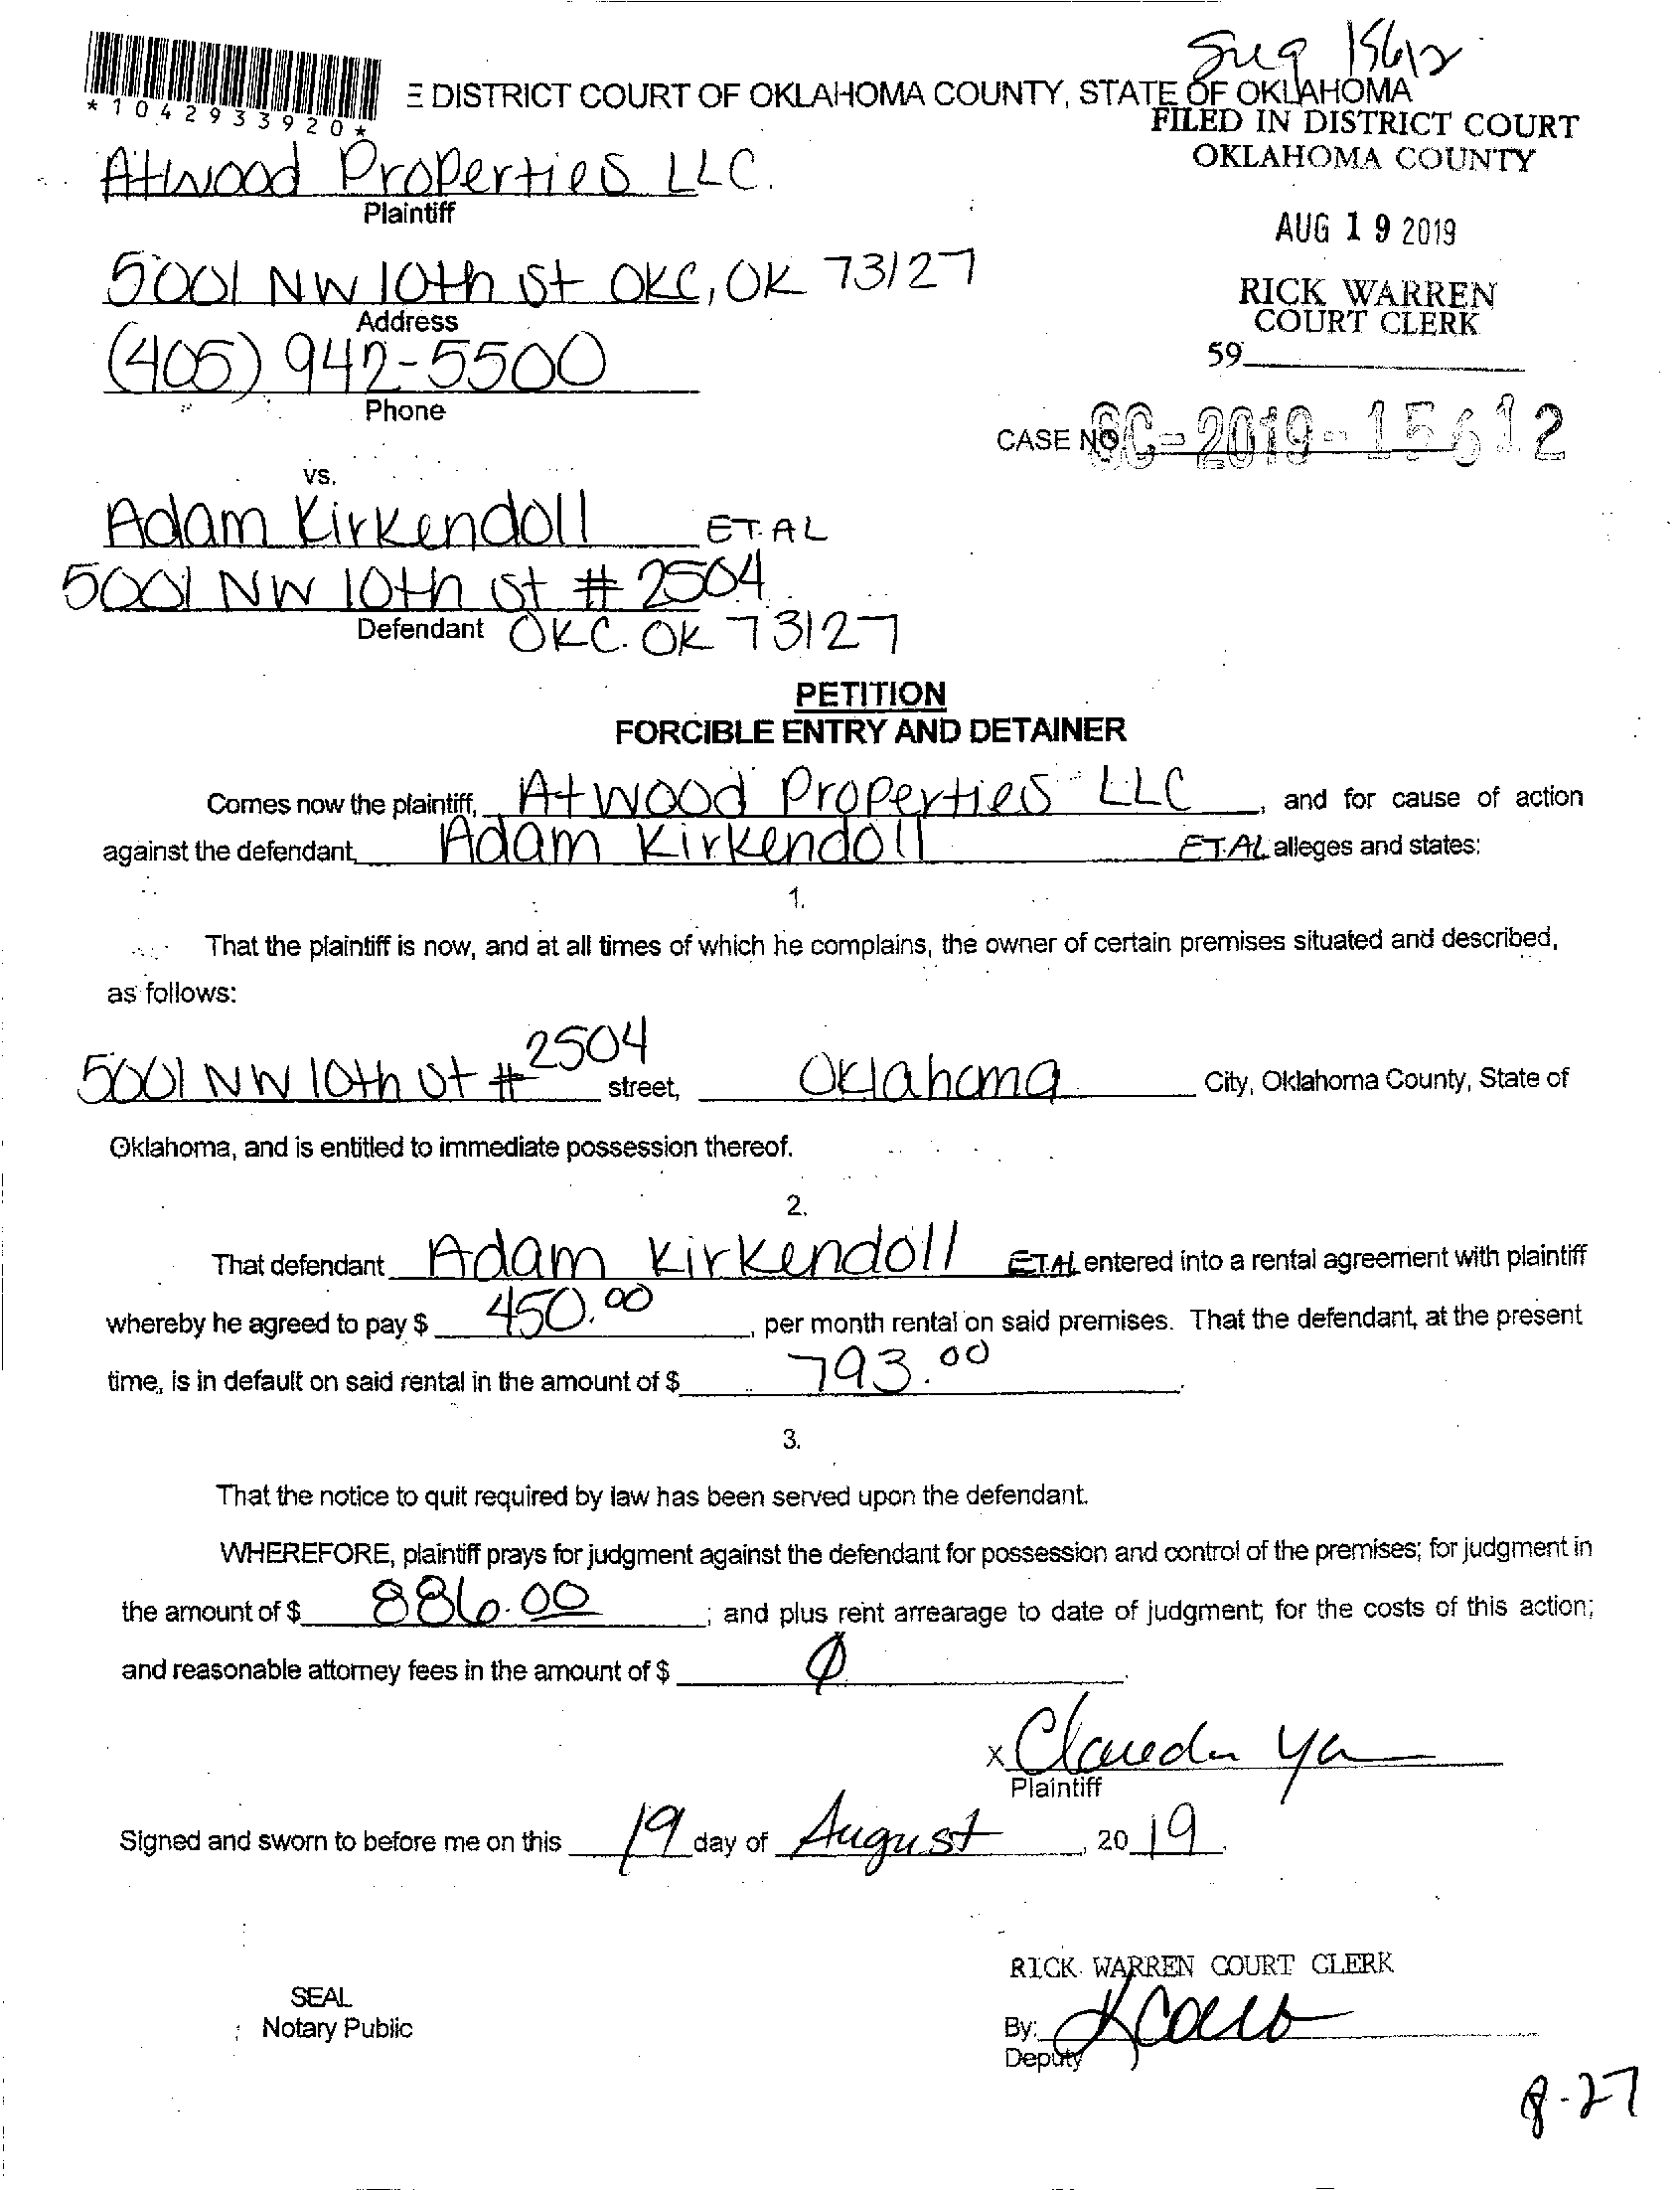 Sug 15612
*1042933920*
E DISTRICT COURT OF OKLAHOMA COUNTY, STATE OF OKLAHOMA
FILED IN DISTRICT COURT
OKLAHOMA COUNTY
Atwood Properties LLC.
Plaintiff
AUG 19 2019
5001 NW 10th St OKC, OK 73127
Address
RICK WARREN
COURT CLERK
(405) 942-5500
Phone
59
CASE NO. SC-2019-15612
vs.
Adam Kirkendoll ET.AL
5001 NW 10th St # 2504
Defendant OKC. OK 73127
PETITION
FORCIBLE ENTRY AND DETAINER
Comes now the plaintiff, Atwood Properties LLC, and for cause of action
against the defendant, Adam Kirkendoll ET.AL alleges and states:
1.
That the plaintiff is now, and at all times of which he complains, the owner of certain premises situated and described,
as follows:
5001 NW 10th St # 2504 street, Oklahoma City, Oklahoma County, State of
Oklahoma, and is entitled to immediate possession thereof.
2.
That defendant Adam Kirkendoll ET.AL entered into a rental agreement with plaintiff
whereby he agreed to pay $ 450.00, per month rental on said premises. That the defendant, at the present
time, is in default on said rental in the amount of $ 793.00.
3.
That the notice to quit required by law has been served upon the defendant.
WHEREFORE, plaintiff prays for judgment against the defendant for possession and control of the premises; for judgment in
the amount of $ 886.00; and plus rent arrearage to date of judgment; for the costs of this action;
and reasonable attorney fees in the amount of $ Ø.
x Claudia Ya
Plaintiff
Signed and sworn to before me on this 19 day of August, 2019.
RICK WARREN COURT CLERK
SEAL
Notary Public
By:
Deputy
8-27